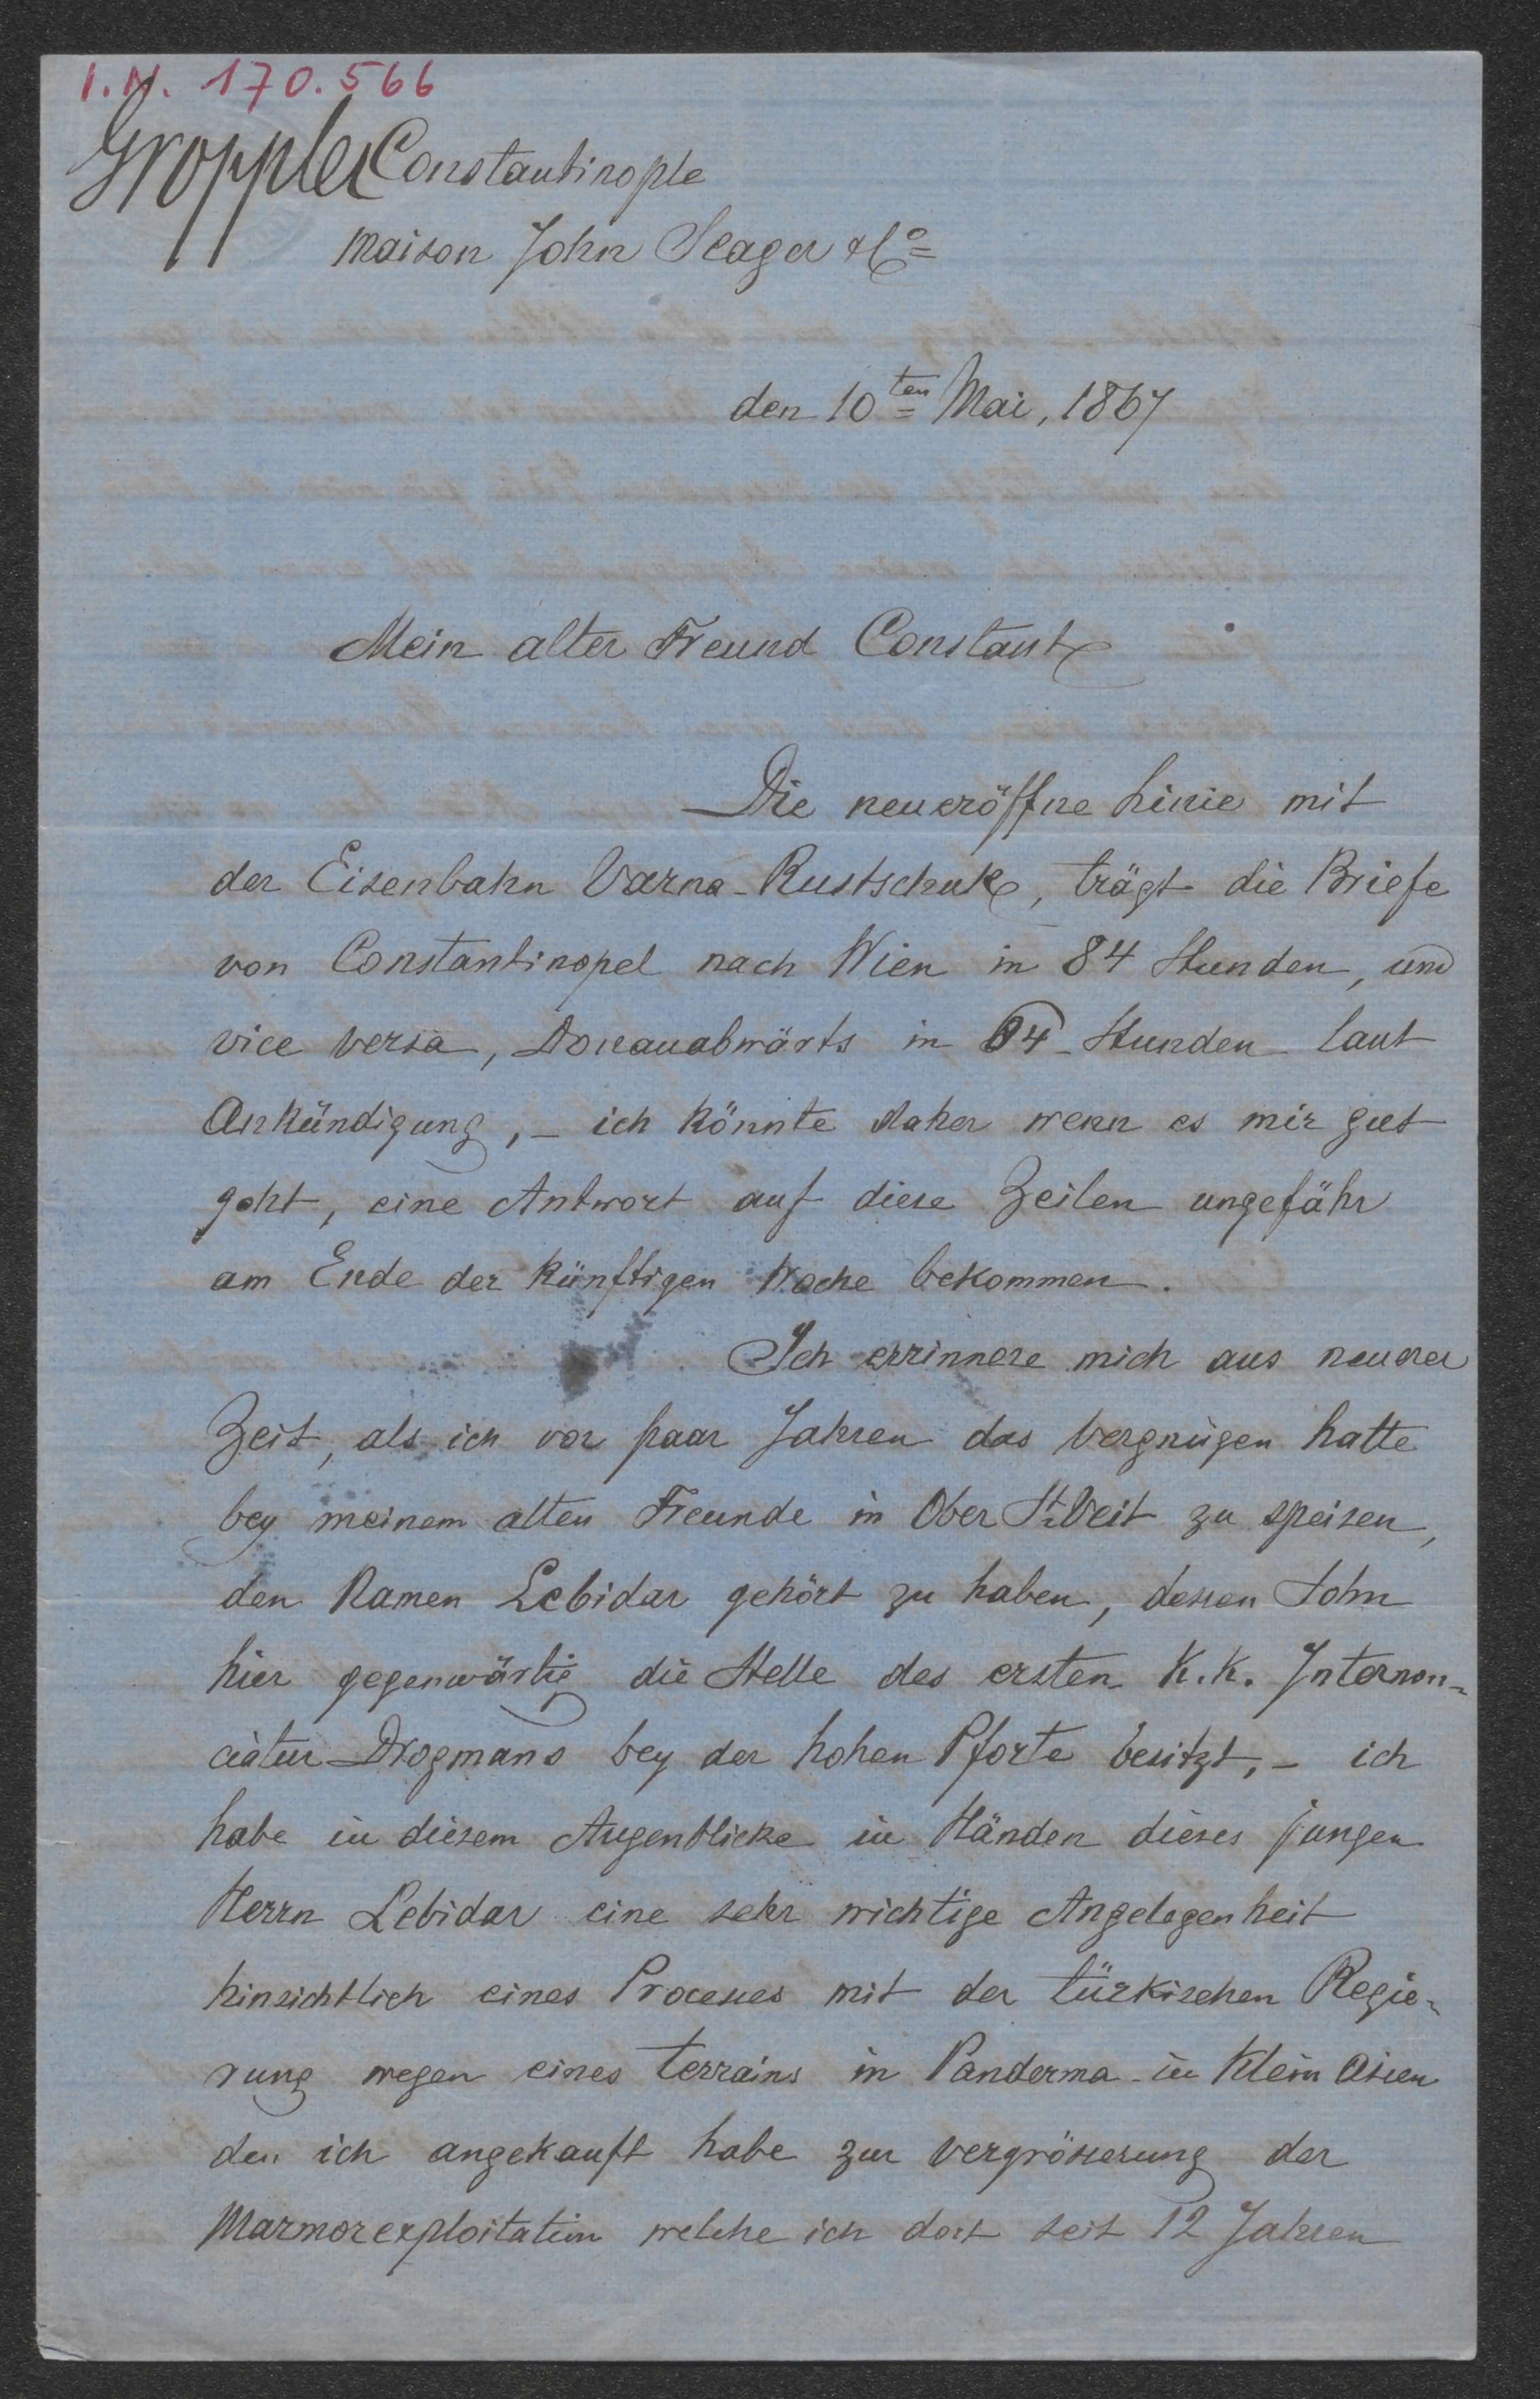 I.N. 170.566
Groppler Constantinople
Maison John Seager & Co
den 10ten Mai, 1867
Mein alter Freund Constant
Die neueröffne Linie mit
der Eisenbahn Varna-Rustschuk, trägt die Briefe
von Constantinopel nach Wien in 84 Stunden, und
vice versa, Donauabwärts in 64 Stunden laut
Ankündigung, – ich könnte daher wenn es mir gut
geht, eine Antwort auf diese Zeilen ungefähr
am Ende der künftigen Woche bekommen.
Ich errinnere mich aus neuerer
Zeit, als ich vor paar Jahren das Vergnügen hatte
bey meinem alten Freunde in Ober St. Veit zu speisen,
den Namen Lebidar gehört zu haben, dessen Sohn
hier gegenwärtig die Stelle des ersten K.K. Internon-
ciatur-Drogmans bey der hohen Pforte besitzt, – ich
habe in diesem Augenblicke in Händen dieses jungen
Herrn Lebidar eine sehr wichtige Angelegenheit
hinsichtlich eines Processes mit der türkischen Regie-
rung wegen eines terrains in Panderma in Klein Asien
den ich angekauft habe zur Vergrösserung der
Marmorexploitation welche ich dort seit 12 Jahren